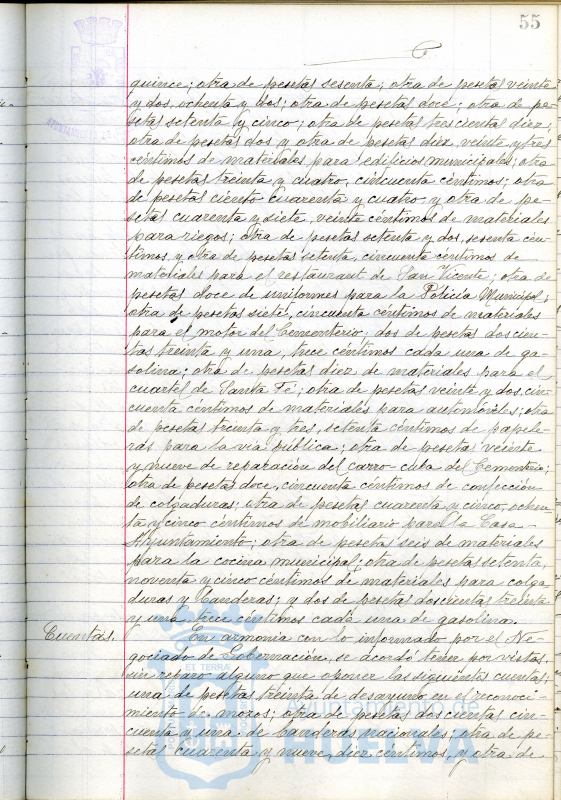 55
quince; otra de pesetas sesenta; otra de pesetas veinte
y dos, ochenta y dos; otra de pesetas doce; otra de pe-
setas setenta y cinco; otra de pesetas trescientas diez;
otra de pesetas dos y otra de pesetas diez, veinte y tres
céntimos de materiales para edificios municipales; otra
de pesetas treinta y cuatro, cincuenta céntimos; otra
de pesetas ciento cuarenta y cuatro y otra de pe-
setas cuarenta y siete, veinte céntimos de materiales
para riegos; otra de pesetas setenta y dos, sesenta cén-
timos, y otra de pesetas setenta, cincuenta céntimos de
materiales para el restaurant de San Vicente; otra de
pesetas doce de uniformes para la Policía Municipal;
otra de pesetas siete, cincuenta céntimos de materiales
para el motor del Cementerio; dos de pesetas doscien-
tas treinta y una, trece céntimos cada una de ga-
solina; otra de pesetas diez de materiales para el
cuartel de Santa Fé; otra de pesetas veinte y dos, cin-
cuenta céntimos de materiales para automóviles; otra
de pesetas treinta y tres, setenta céntimos de papele-
ras para la vía pública; otra de pesetas veinte
y nueve de reparación del carro-cuba del Cementerio;
otra de pesetas doce, cincuenta céntimos de confección
de colgaduras; otra de pesetas cuarenta y cinco, ochen-
ta y cinco céntimos de mobiliario para la Casa-
Ayuntamiento; otra de pesetas seis de materiales
para la cocina municipal; otra de pesetas setenta,
noventa y cinco céntimos de materiales para colga-
duras y banderas; y dos de pesetas doscientas treinta
y una, trece céntimos cada una de gasolina.
Cuentas. En armonía con lo informado por el Ne-
gociado de Gobernación, se acordó tener por vistas,
sin reparo alguno que oponer las siguientes cuentas;
una de pesetas treinta de desayuno en el reconoci-
miento de mozos; otra de pesetas doscientas cin-
cuenta y una de banderas nacionales; otra de pe-
setas cuarenta y nueve, diez céntimos, y otra de
ET TERRÆ
Ayuntamiento de
HUELVA